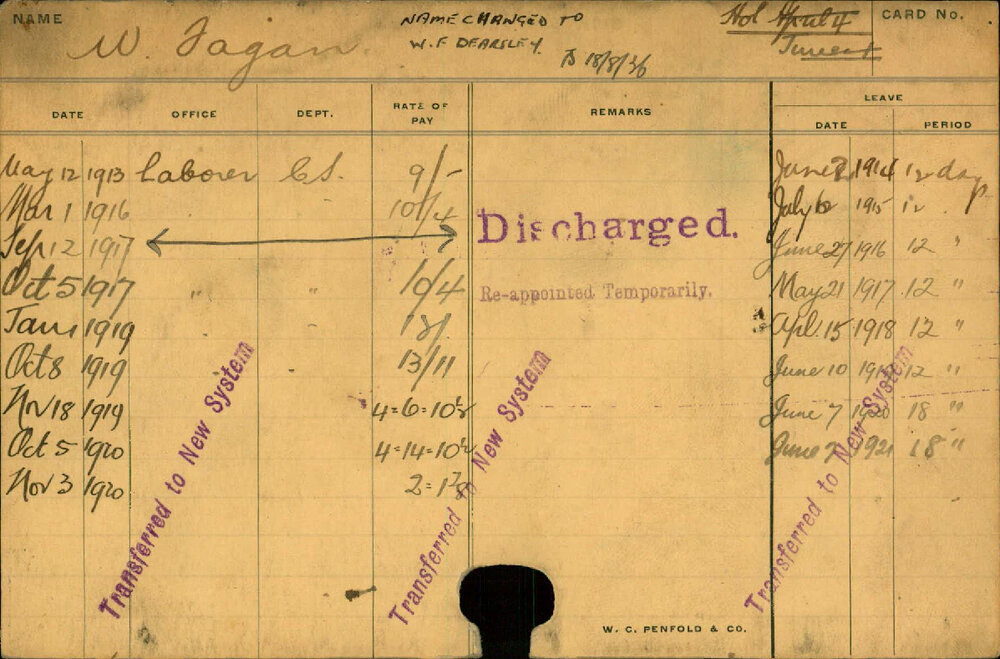 NAME W. Fagan NAME CHANGED TO Hol April 4 CARD No.
W. F DEARSLEY 18/8/36
LEAVE
DATE OFFICE DEPT. RATE OF PAY REMARKS DATE PERIOD
May 12 1913 Laborer C.S. 9/- June 2 1914 12 days
Mar 1 1916 10/4 July 6 1915 12
Sep 12 1917 Discharged. June 27 1916 12 "
Oct 5 1917 " " 10/4 Re-appointed Temporarily. May 21 1917 12 "
Jan 1 1919 April 15 1918 12 "
Oct 8 1919 13/11 June 10 1919 12 "
Nov 18 1919 4=6=10½ June 7 1920 18 "
Oct 5 1920 4=14=10½ June 1921 18 "
Nov 3 1920
Transferred to New System
Transferred to New System
Transferred to New System
W. C. PENFOLD & CO.